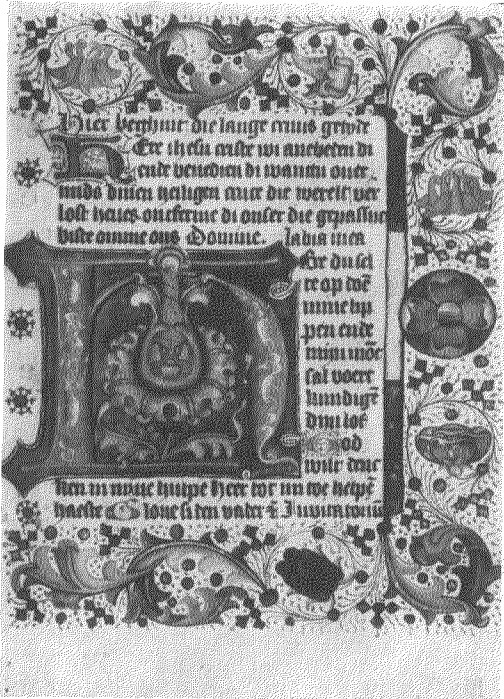 Hier beghint die lange cruus getyde
HEre ihesu criste wi anebeden di
ende benedien di wantu ouer
mids dinen heiligen cruce die werelt ver
lost heues ontferme di onser die gepassiet
biste omme ons Domine. labia mea
HEre du sel
te op doē
mine lip
pen ende
minen mōt
sal voert
kundigē
dinē lof
God
wilt denc
ken in mine hulpe Heer tot mi toe helpē
haeste Glorie si den vader &